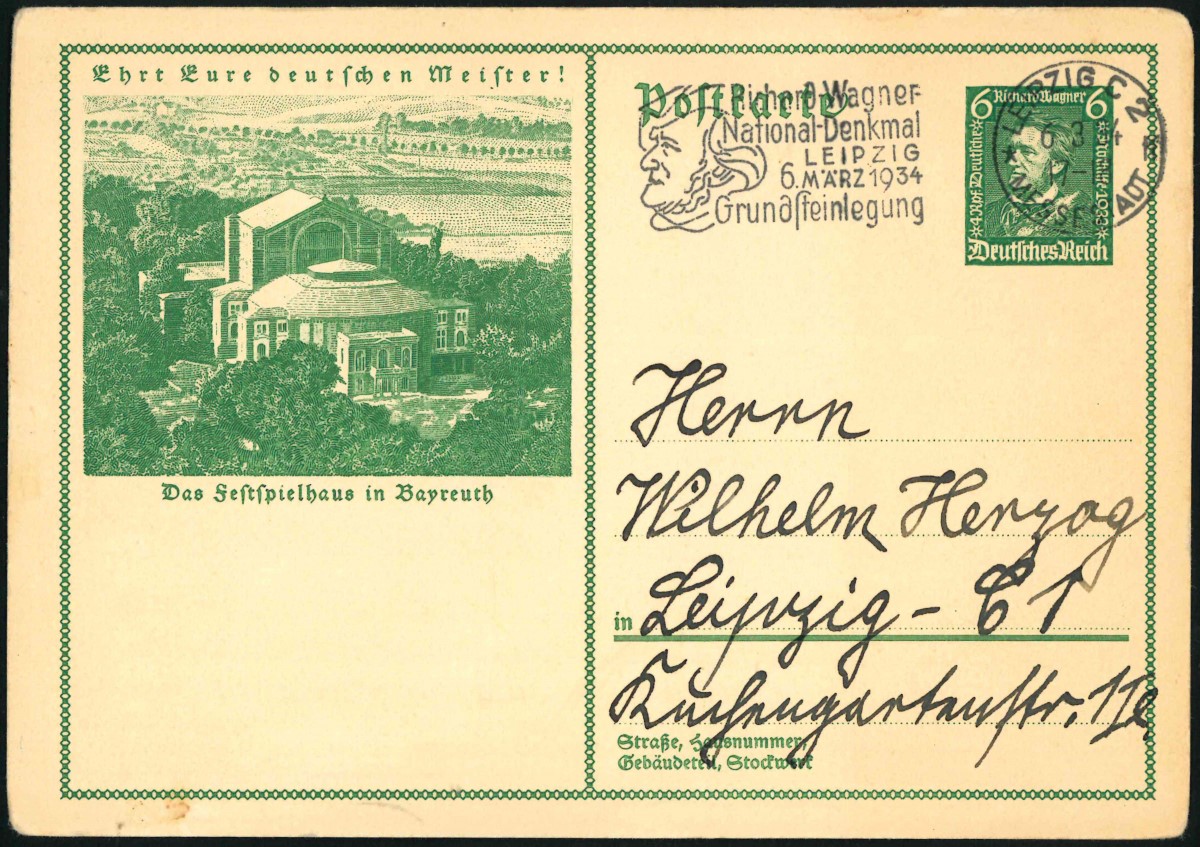 Ehrt Eure deutschen Meister!
Das Festspielhaus in Bayreuth
Postkarte
Richard-Wagner-
National-Denkmal
LEIPZIG
6. MÄRZ 1934
Grundsteinlegung
6 Richard Wagner 6
Deutsches Reich
LEIPZIG C 2
6 3 4
MESSESTADT
Herrn
Wilhelm Herzog
in Leipzig - C 1
Kuchengartenstr.
Straße, Hausnummer,
Gebäudeteil, Stockwerk